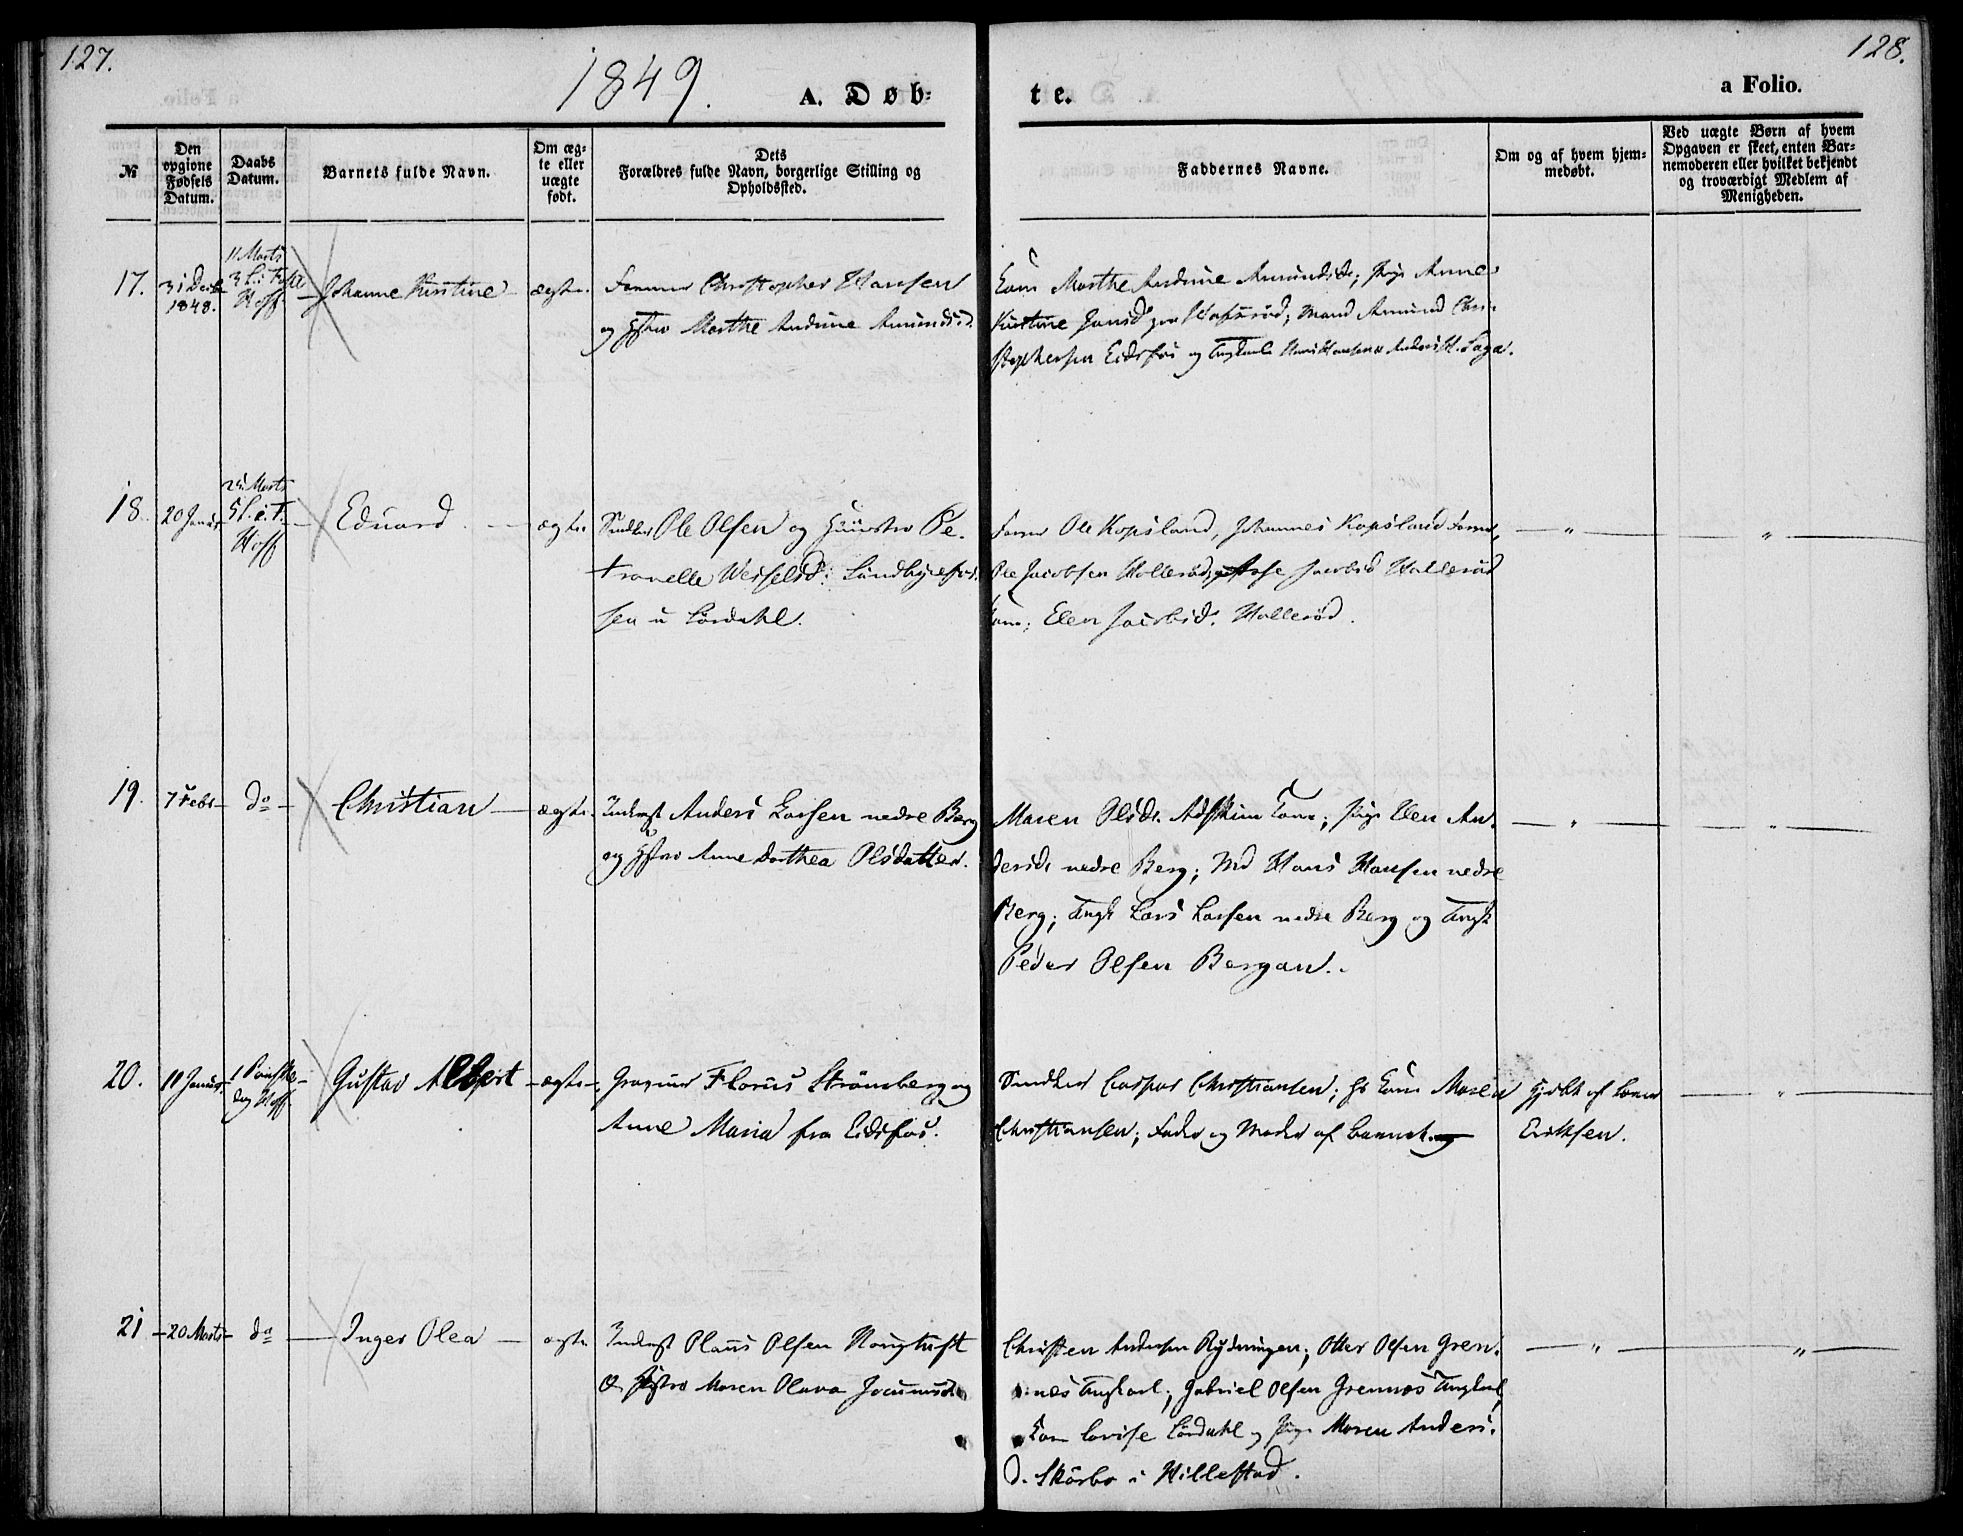 127.
1849.
A. Døb-
te.
a Folio.
128.
№
Den opgivne Fødsels Datum.
Daabs Datum.
Barnets fulde Navn.
Om æg-
te eller
uægte
født.
Dets
Forældres fulde Navn, borgerlige Stilling og
Opholdssted.
Faddernes Navne.
Om og af hvem hjem-
medøbt.
Ved uægte Børn af hvem
Opgaven er skeet, enten Bar-
nemoderen eller hvilket bekjendt
og troværdigt Medlem af
Menigheden.
17.
31 Decbr
1848.
11 Marts
3 S. i Faste
Hoff
Johanne Kirstine
ægte.
Christopher Hansen
og Hstro Marthe Andrine Amundsd.
Marthe Andrine Amundsdr; Pige Anne
Kirstine Jansd fra ; Mand Amund Chri-
stophersen Eidsfos og Ungkarle
18.
20 Januar
25 Marts
5 S. i F.
Hoff
Eduard
ægte
Ole Olsen og Hustro Pe-
tronelle Lundbyefos-
sen u Lördahl.
Ole Kopsland, Johannes Kopsland
Ole Jacobsen Hollerød, Jacobsd Hollerød
Elen Jacobsd. Hollerød.
— " —
"
19.
7 Febr
do
Christian
ægte.
Inderst Anders Larsen nedre Berg
og Hstro Anne Dorthea Olsdatter.
Maren Olsdr. ; Pige Elen An-
dersdr nedre Berg; Md Hans Hansen nedre
Berg; Ungk Lars Larsen nedre Berg og Ungk
Peder Olsen Bergan.
— " —
"
20.
11 Januar
1 Paaske-
dag Hoff.
Gustav Albert
ægte
Florus Strömberg og
Anne Maria fra Eidsfos.
Smedker Caspar Christiansen; Maren
Christiansen; Fader og Moder af Barnet.
Hjdbt af
Eriksen.
"
21
20 Marts
do
Inger Olea
ægte
Inderst Olaus Olsen
& Hstro Maren Olava
Christen Andersen Rydningen; Otter Olsen Gren-
næs Ungkarl; Gabriel Olsen Grennæs Ungkarl
Lovise Lördahl og Pige Maren Anders-
d. Skarbo i Hillestad.
— " —
"